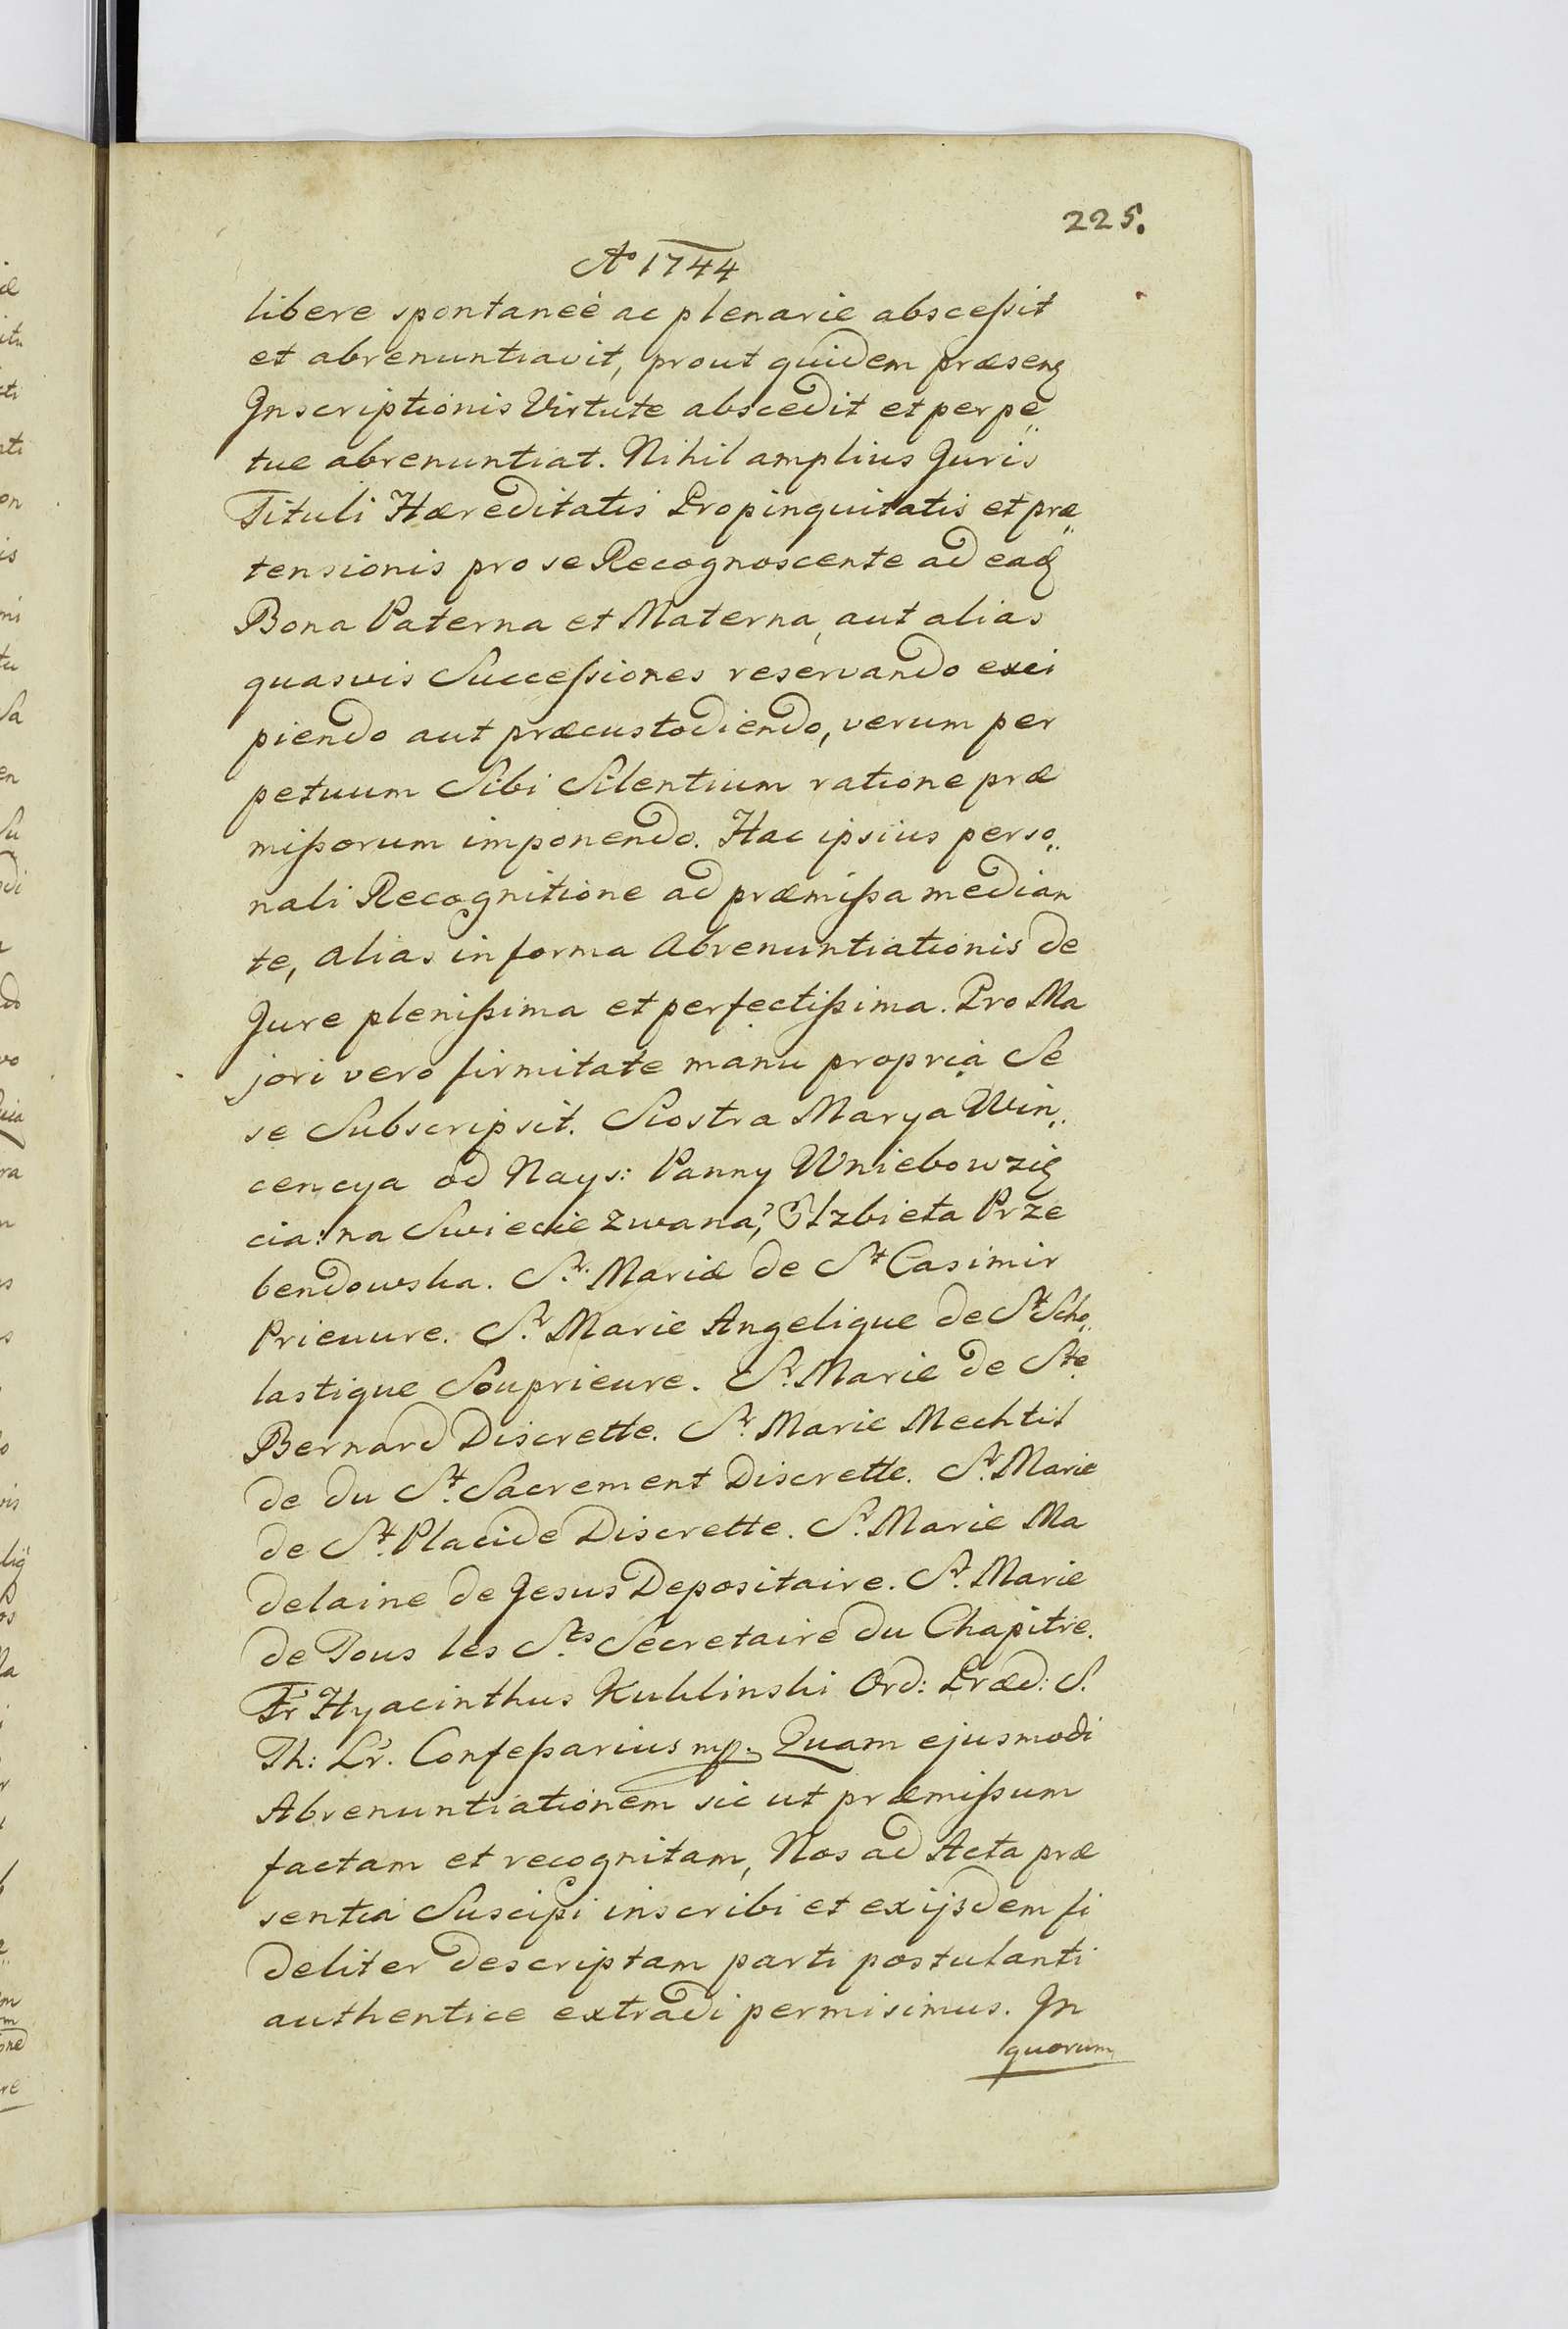 225.
Aº 1744
libere spontaneè ac plenarie abscessit
et abrenuntiavit, prout quidem præsenȩ
Inscriptionis Virtute abscedit et perpe„
tue abrenuntiat. Nihil amplius Juris
Tituli Hæreditatis Propinquitatis et præ„
tensionis pro se Recognoscente ad eaȩ
Bona Paterna et Materna, aut alias
quasvis Successiones reservando exci
piendo aut præcustodiendo, verum per
petuum Sibi Silentium ratione præ
missorum imponendo. Hac ipsius perso„
nali Recognitione ad præmissa median
te, alias in forma Abrenuntiationis de
Jure plenissima et perfectissima. Pro Ma
jori vero firmitate manu propria Se
se Subscripsit. Siostra Marya Win„
cencya od Nays: Panny Wniebowzię
cia: na Swiecie zwana, Elzbieta Prze
bendowska. Sr. Mariæ de St Casimir
Prieuure. Sr. Marie Angelique de St Scho„
lastique Souprieure. Sr. Marie de Ste.
Bernard Discrette. Sr. Marie Mechtil
de du St. Sacrement Discrette. Sr. Marie
de St. Placide Discrette. Sr. Marie Ma
delaine de Jesus Depositaire. Sr. Marie
de Tous les Sts. Secretaire du Chapitre.
Fr Hyacinthus Kuklinski Ord: Præd: S.
Th: Lr. Confessarius mp. Quam ejusmodi
Abrenuntiationem sic ut præmissum
factam et recognitam, Nos ad Acta præ
sentia Suscipi inscribi et ex ijsdem fi
deliter descriptam parti postulanti
authentice extradi permisimus. In
quorum